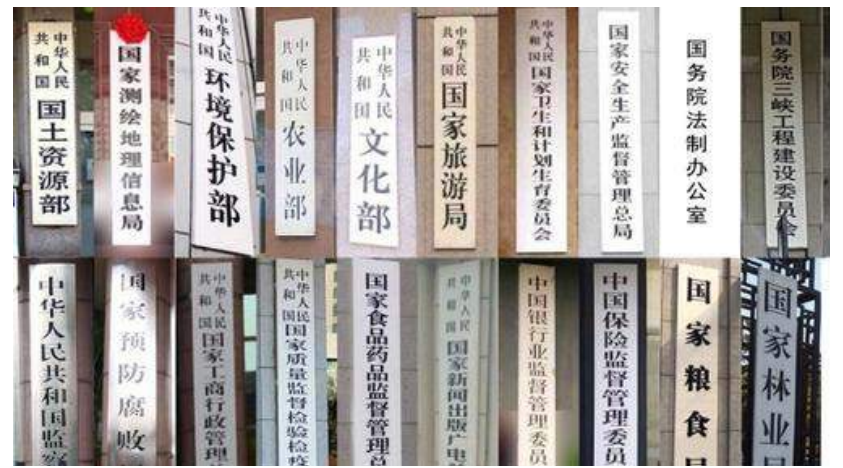 中华人民共和国 国土资源部
国家测绘地理信息局
中华人民共和国 环境保护部
中华人民共和国 农业部
中华人民共和国 文化部
中华人民共和国 国家旅游局
中华人民共和国 国家卫生和计划生育委员会
国家安全生产监督管理总局
国务院法制办公室
国务院三峡工程建设委员会
中华人民共和国监察
国家预防腐败
中华人民共和国 国家工商行政管理
中华人民共和国 国家质量监督检验检疫
国家食品药品监督管理总
中华人民共和国 国家新闻出版广电
中国银行业监督管理委员
中国保险监督管理委员
国家粮食局
国家林业局